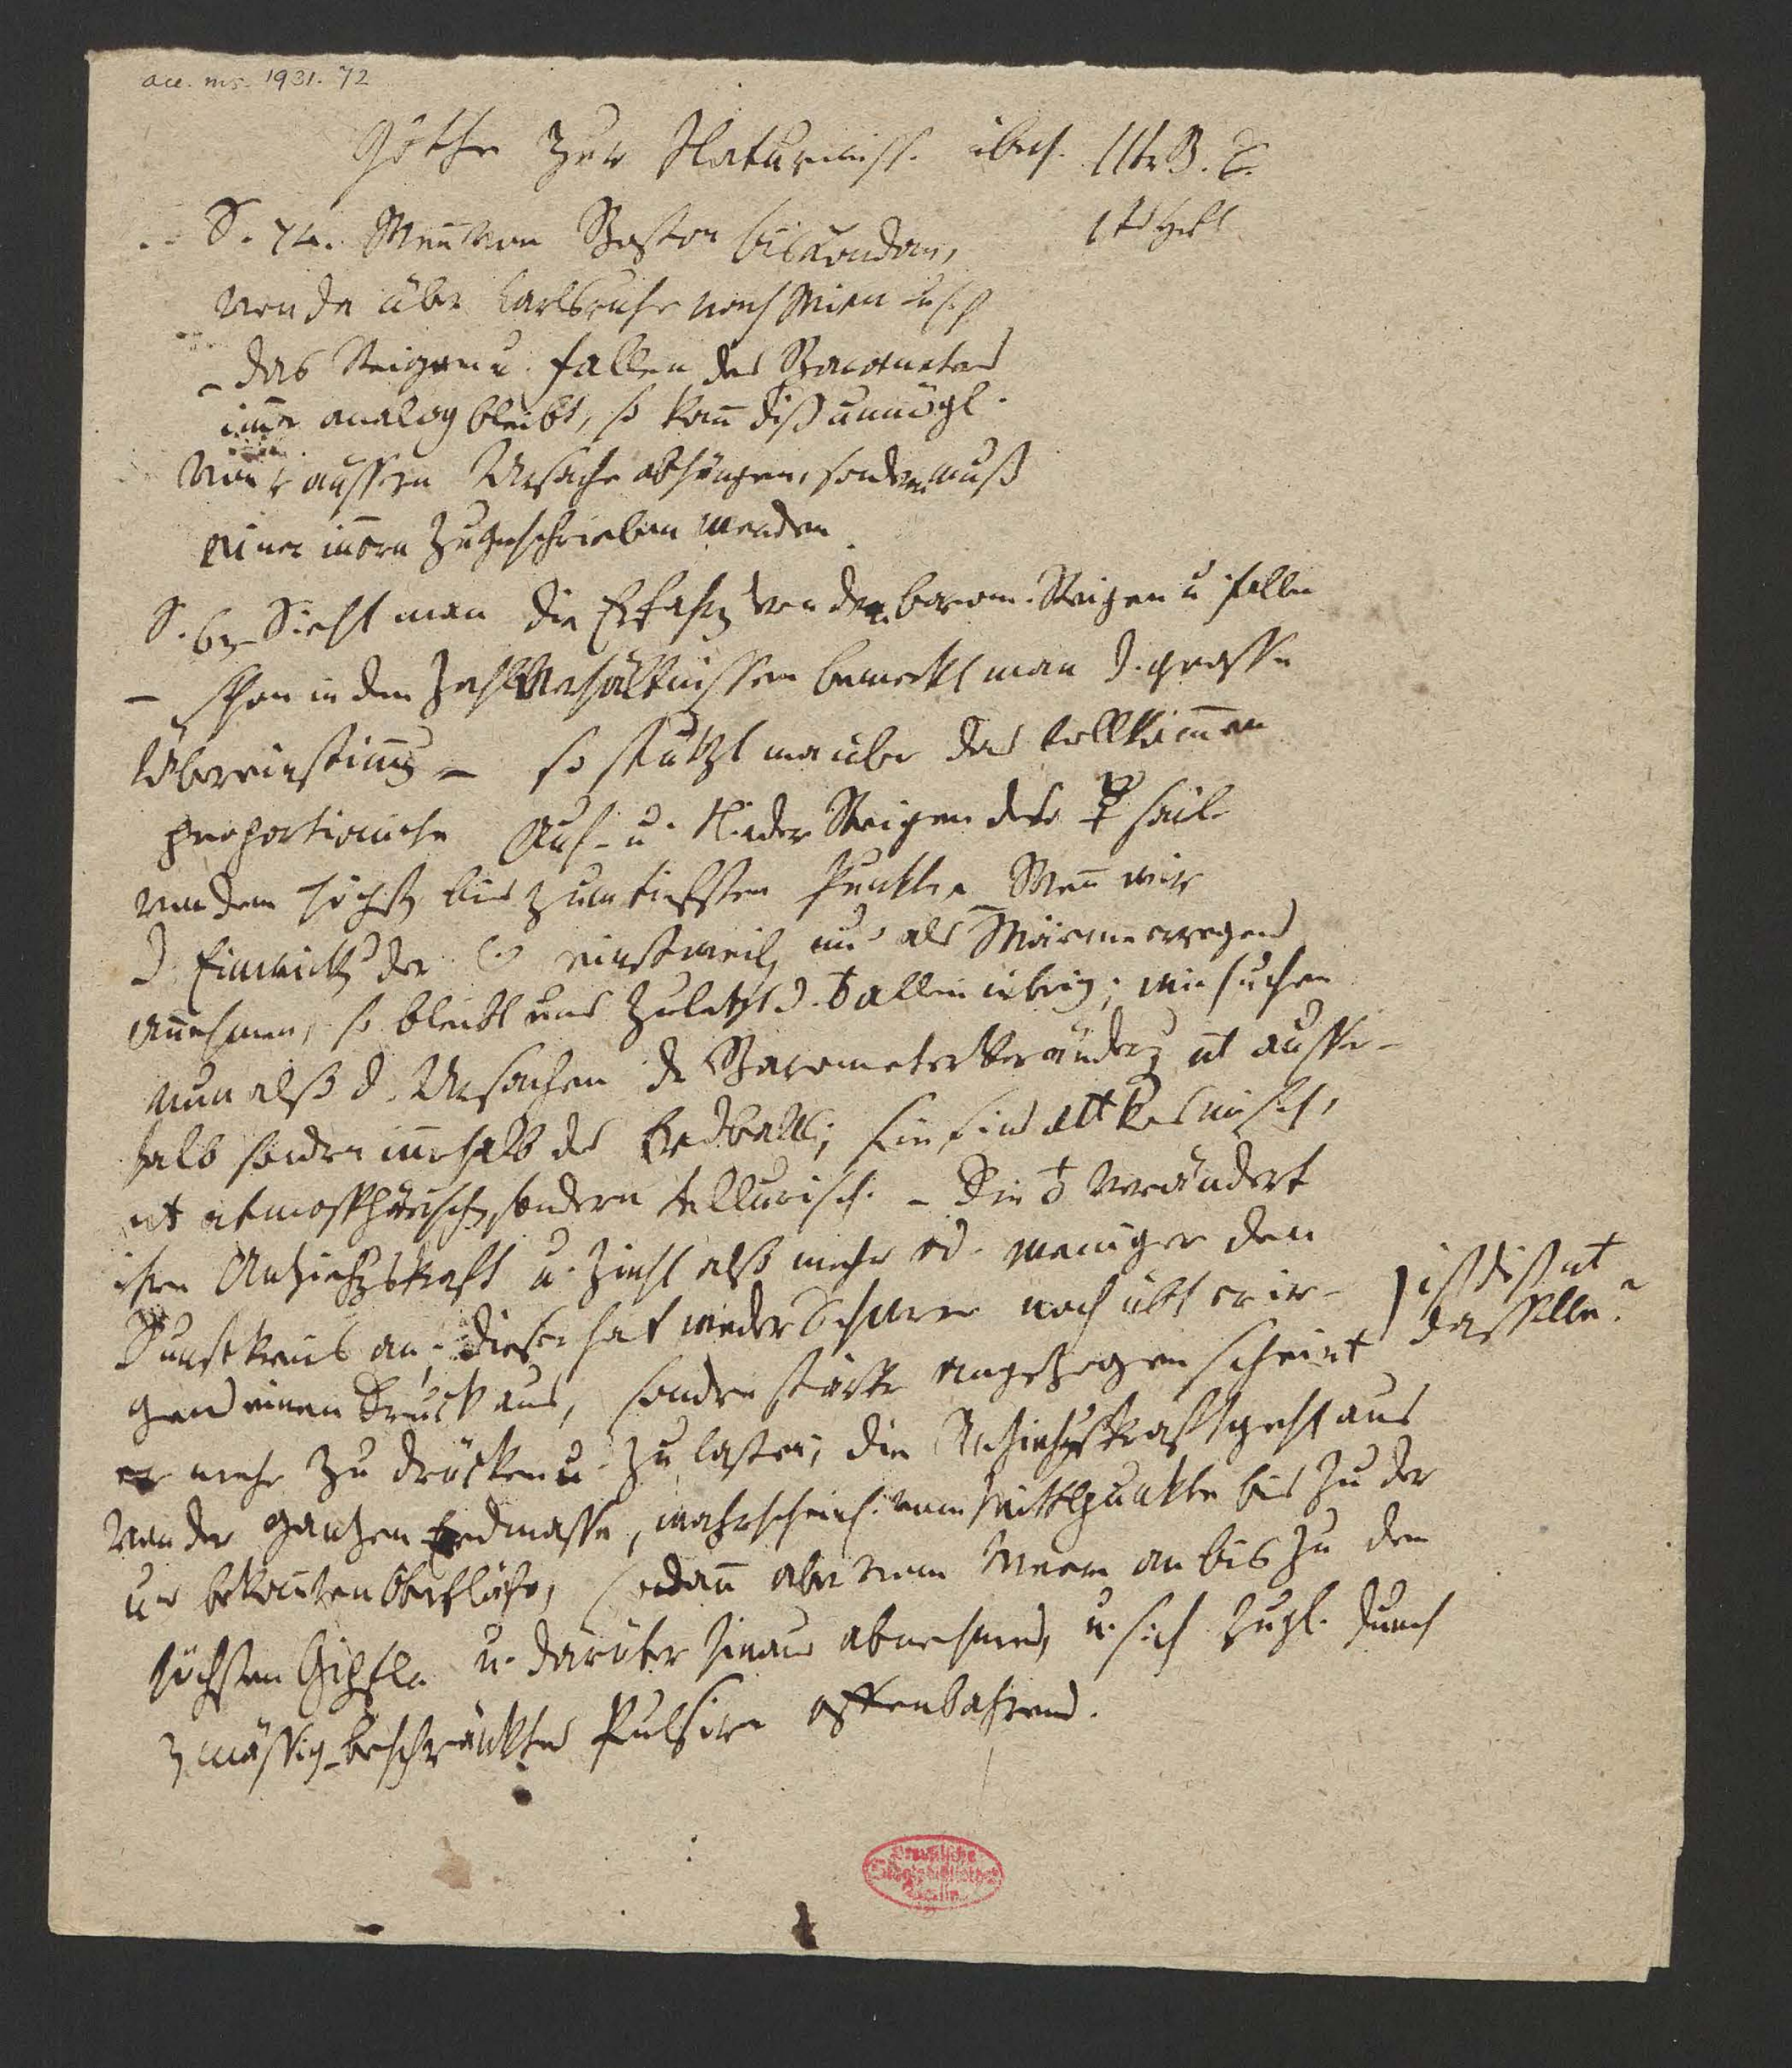 acc. ms. 1931. 72
Göthe zur Naturwiss. überh. IItr B.
1ts Heft
S. 74. Wenn von Boston bis London,
von da über Carlsruhe nach Wien u.s.f.
– das Steigen u. fallen des Barometers
imer analog bleibt, so kañ diß unmögl.
von r äussern Ursache abhängen, sondern muß
einer iñern zugeschrieben werden
S. 62 Sieht man die Erfahrg von dem barom. Steigen u fallen
– schon in den Zahlverhältnissen bemerkt man d. grosse
Übereinstimg – so stutzt man über das vollkomen
proportionirte Auf- u. Nieder Steigen der ☿ säule
von dem höchstn bis zum tiefsten Punkte. – Weñ wir
d. Einwirkg der ☉ einstweiln nur als Wärme erregend
añehmen, so bleibt uns zuletzt d. ♁ allein übrig; wir suchen
nun also d. Ursachen dr Barometer Veränderg nt ausser-
halb sondern iñerhalb des Erdballs; sie sind nt kosmisch,
nt atmosphärisch, sondern tellurisch. – Die ♁ verändert
ihre Anziehgskraft u. zieht also mehr od. weniger den
Dunstkreis an; dieser hat weder Schwere noch übt er ir-
gend einen Druck aus, sondern stärker angezogen scheint
er mehr zu drücken u. zu lasten; die Anziehgskraft geht aus
) ist diß nt
dasselbe?
von der ganzen Erdmasse, wahrscheinl. vom Mittelpunkte bis zu der
uns bekannten Oberfläche, sodañ aber vom Meere an bis zu den
höchsten Gipfeln u. darüber hinaus abnehmend, u. sich zugl. durch
zmässig-beschränktes Pulsiren offenbahrend.
Preußische
Staatsbibliothek
Berlin